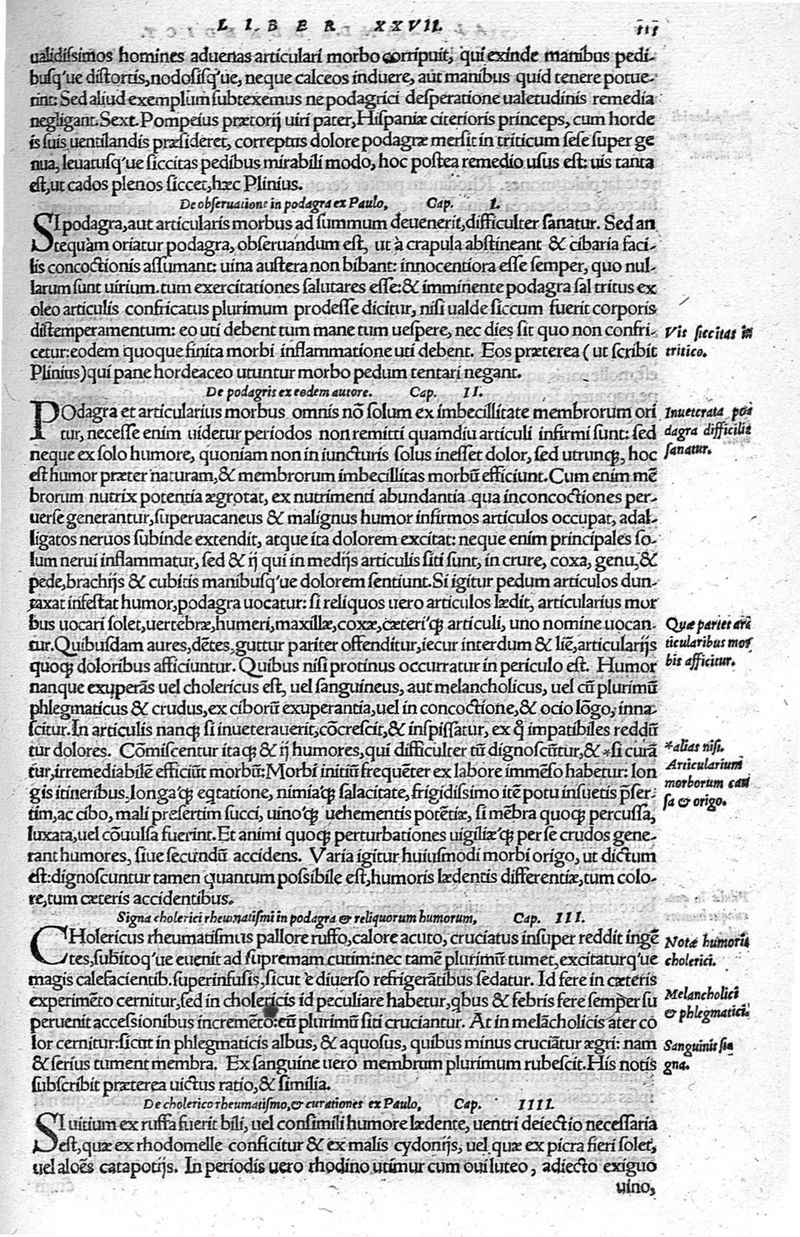 LIBER XXVII.
ualidissimos homines aduenas articulari morbo corripuit, qui exinde manibus pedi-
busq́ue distortis, nodosisq́ue, neque calceos induere, aut manibus quid tenere potue-
rint: Sed aliud exemplum subtexemus ne podagrici desperatione ualetudinis remedia
negligant. Sext. Pompeius prætorij uiri pater, Hispaniæ citerioris princeps, cum horde
is suis uentilandis præsideret, correptus dolore podagræ mersit in triticum sese super ge
nua, leuatusq́ue siccitas pedibus mirabili modo, hoc postea remedio usus est: uis tanta
est, ut cados plenos siccet, hæc Plinius.
De obseruatione in podagra ex Paulo, Cap. I.
SI podagra, aut articularis morbus ad summum deuenerit, difficulter sanatur. Sed an
tequàm oriatur podagra, obseruandum est, ut à crapula abstineant & cibaria faci-
lis concoctionis assumant: uina austera non bibant: innocentiora esse semper, quo nul-
larum sunt uirium. tum exercitationes salutares esse: & imminente podagra sal tritus ex
oleo articulis confricatus plurimum prodesse dicitur, nisi ualde siccum fuerit corporis
distemperamentum: eo uti debent tum mane tum uespere, nec dies sit quo non confri-
cetur: eodem quoque finita morbi inflammatione uti debent. Eos præterea (ut scribit
Plinius) qui pane hordeaceo utuntur morbo pedum tentari negant.
Vis siccitas in
tritico.
De podagris ex eodem autore. Cap. II.
POdagra et articularius morbus omnis nõ solum ex imbecillitate membrorum ori
tur, necesse enim uidetur periodos non remitti quamdiu articuli infirmi sunt: sed
neque ex solo humore, quoniam non in iuncturis solus inesset dolor, sed utrunqꝫ, hoc
est humor præter naturam, & membrorum imbecillitas morbũ efficiunt. Cum enim mẽ
brorum nutrix potentia ægrotat, ex nutrimenti abundantia qua inconcoctiones per-
uerse generantur, superuacaneus & malignus humor infirmos articulos occupat, adal-
ligatos neruos subinde extendit, atque ita dolorem excitat: neque enim principales so-
lum nerui inflammatur, sed & ij qui in medijs articulis siti sunt, in crure, coxa, genu, &
pede, brachijs & cubitis manibusq́ue dolorem sentiunt. Si igitur pedum articulos dun-
taxat infestat humor, podagra uocatur: si reliquos uero articulos lædit, articularius mor
bus uocari solet, uertebræ, humeri, maxillæ, coxæ, cæteriqꝫ articuli, uno nomine uocan-
tur. Quibusdam aures, dẽtes, guttur pariter offenditur, iecur interdum & liẽ, articularijs
quoqꝫ doloribus afficiuntur. Quibus nisi protinus occurratur in periculo est. Humor
nanque exuperãs uel cholericus est, uel sanguineus, aut melancholicus, uel cũ plurimũ
phlegmaticus & crudus, ex ciborũ exuperantia, uel in concoctione, & ocio lõgo, inna-
scitur. In articulis nanqꝫ si inueterauerit, cõcrescit, & inspissatur, ex q̃ impatibiles reddũ
tur dolores. Cõmiscentur itaqꝫ & ij humores, qui difficulter tũ dignoscũtur, & *si curã
tur, irremediabilẽ efficiũt morbũ: Morbi initiũ frequẽter ex labore immẽso habetur: lon
gis itineribus, longa'qꝫ eq̃tatione, nimia'qꝫ salacitate, frigidissimo itẽ potu insuetis p̃ser-
tim, ac cibo, mali presertim succi, uino'qꝫ uehementis potẽtiæ, si mẽbra quoqꝫ percussa,
luxata, uel cõuulsa fuerint. Et animi quoqꝫ perturbationes uigiliæ'qꝫ per se crudos gene-
rant humores, siue secundũ accidens. Varia igitur huiusmodi morbi origo, ut dictum
est: dignoscuntur tamen quantum possibile est, humoris lædentis differentiæ, tum colo-
re, tum cæteris accidentibus.
Inueterata po
dagra difficilis
sanatur.
Quæ partes ar
ticularibus mor
bis afficitur.
*alias nisi.
Articularium
morborum cau
sa & origo.
Signa cholerici rheumatismi in podagra & reliquorum humorum, Cap. III.
CHolericus rheumatismus pallore ruffo, calore acuto, cruciatus insuper reddit ingẽ
tes, subitoq́ue euenit ad supremam cutim: nec tamẽ plurimũ tumet, excitaturq́ue
magis calefacientib. superinfusis, sicut è diuerso refrigerãtibus sedatur. Id fere in cæteris
experimẽto cernitur, sed in cholericis id peculiare habetur, qbus & febris fere semper su
peruenit accessionibus incremẽto: cũ plurimũ siti cruciantur. At in melãcholicis ater co
lor cernitur: sicut in phlegmaticis albus, & aquosus, quibus minus cruciãtur ægri: nam
& serius tument membra. Ex sanguine uero membrum plurimum rubescit. His notis
subscribit præterea uictus ratio, & similia.
Notæ humoris
cholerici.
Melancholici
& phlegmatici.
Sanguinis sig
gna.
De cholerico rheumatismo, & curationes ex Paulo, Cap. IIII.
SI uitium ex ruffa fuerit bili, uel consimili humore lædente, uentri deiectio necessaria
est, quæ ex rhodomelle conficitur & ex malis cydonijs, uel quæ ex picra fieri solet,
uel aloẽs catapotijs. In periodis uero rhodino utimur cum oui luteo, adiecto exiguo
uino,